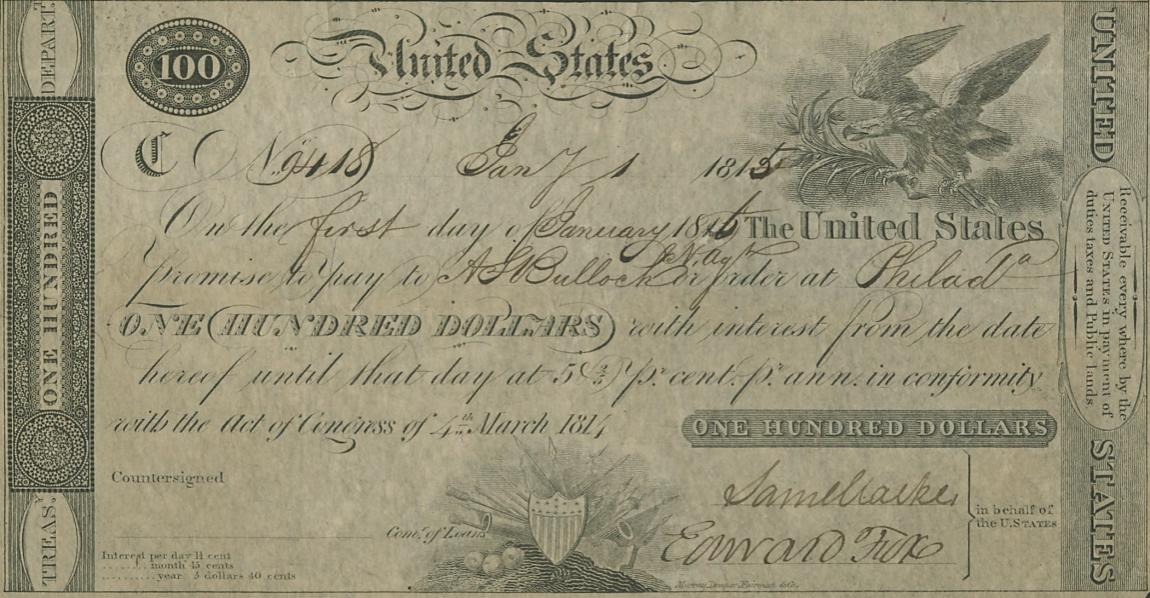 DEPART.T
ONE HUNDRED
TREAS.Y
100
United States
C No 9418 Jany 1 1815
On the first day of January 1816 The United States
promise to pay to A S Bullock N. Agt or order at Philada
ONE HUNDRED DOLLARS with interest from the date
hereof until that day at 5 2/5 pr. cent. pr. ann. in conformity
with the Act of Congress of 4th March 1814
ONE HUNDRED DOLLARS
Countersigned
Comr. of Loans
Edward Fox
in behalf of
the U.STATES
Interest per day 1½ cent
........ month 45 cents
.......... year 5 dollars 40 cents
Murray, Draper Fairman & Co.
UNITED STATES
Receivable every where by the
UNITED STATES in payment of
duties taxes and Public lands